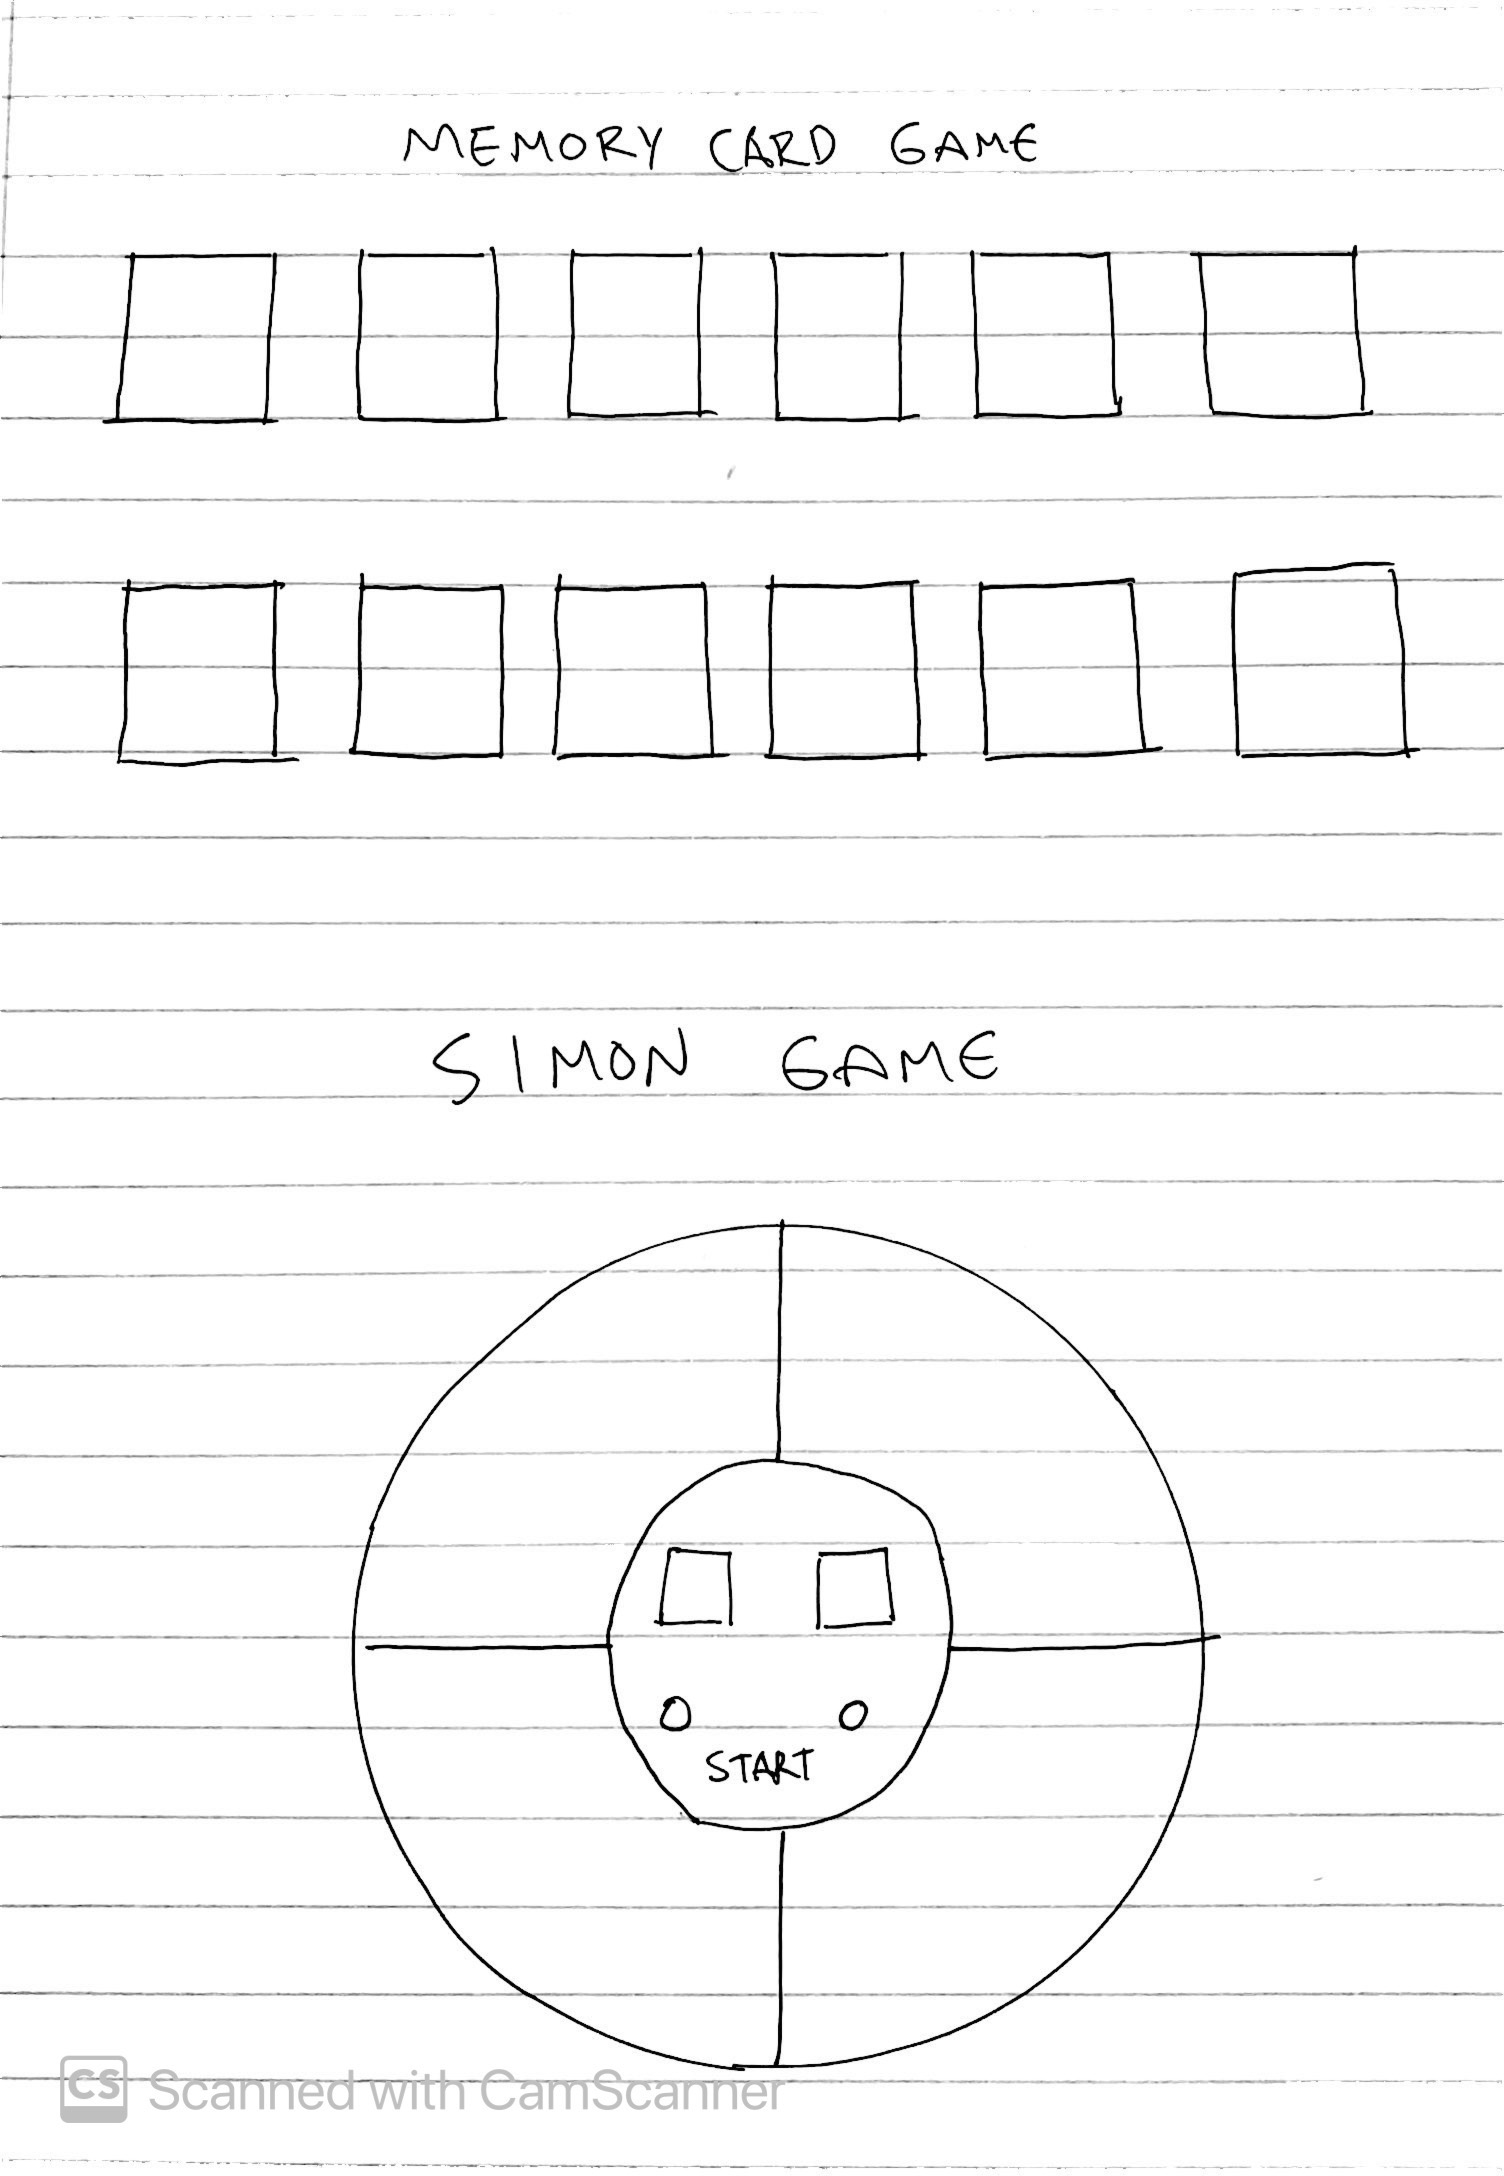 MEMORY CARD GAME
SIMON GAME
START
CS Scanned with CamScanner